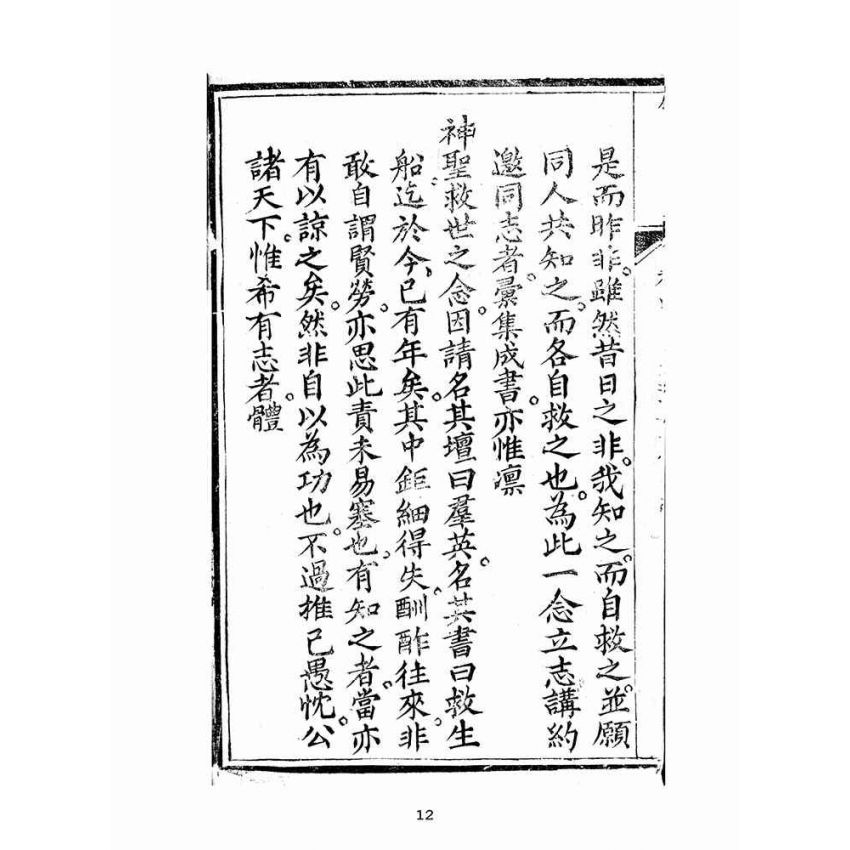 是而昨非。雖然昔日之非。我知之。而自救之。並願
同人共知之。而各自救之也。為此一念立志講約
邀同志者。彙集成書。亦惟凛
神聖。救世之念。因請名其壇曰羣英。名其書曰救生
船。迄於今、已有年矣。其中鉅細得失。酬酢往來。非
敢自謂賢勞。亦思此責未易塞也。有知之者。當亦
有以諒之矣。然非自以為功也。不過推己愚忱。公
諸天下。惟希有志者。體
12